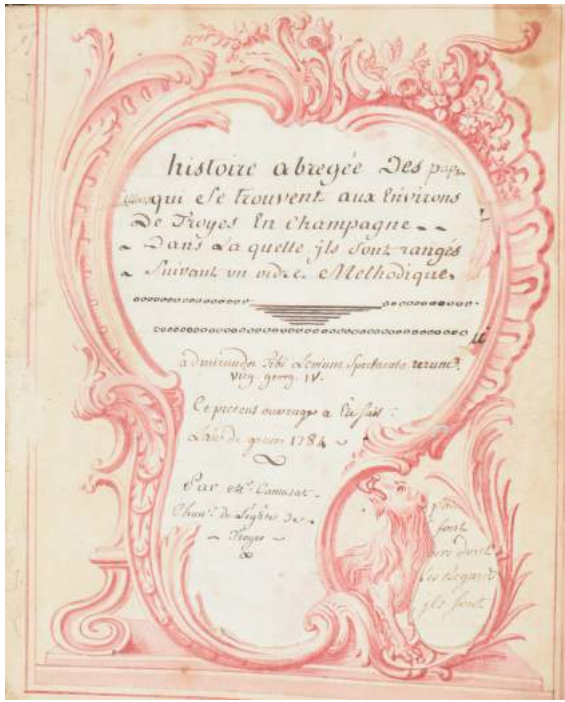 histoire abregée Des pap
qui se trouvent aux Environs
De Troyes En Champagne - -
Dans La quelle jls sont rangés
Suivant un ordre Methodique.
admiranda Tibi Levium Spectacula rerum.
virg. georg. IV.
Ce present ouvrage a Eté fait
L'an de grace 1784
Par Mr. Camusat
Chan. de L'église de
Troyes
font
Les Regard
jls sont